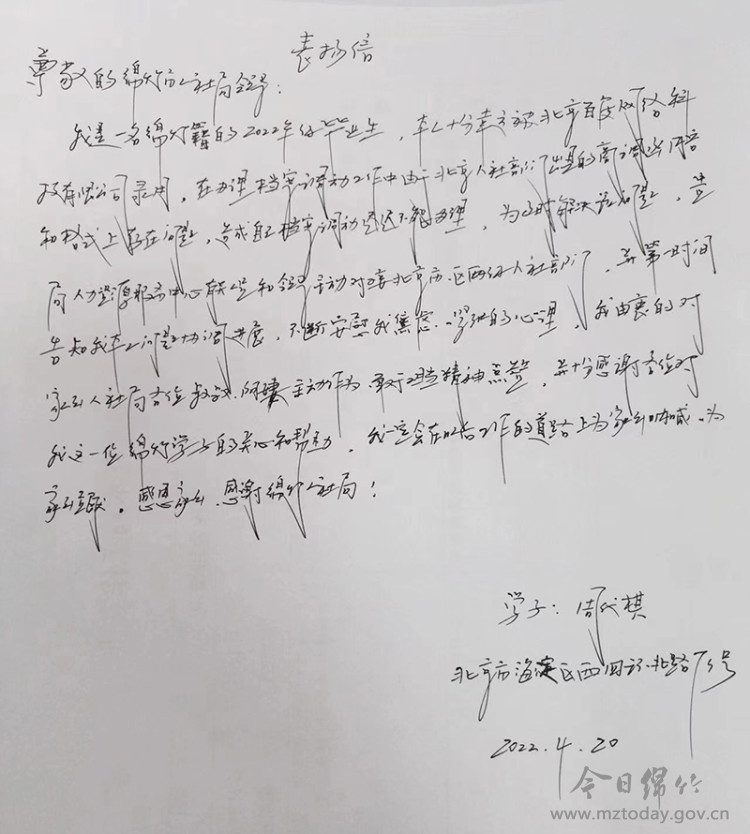 表扬信
尊敬的绵竹市人社局领导：
我是一名绵竹籍的2022年份毕业生，本人十分幸运被北京百度网络科
技有限公司录用，在办理档案调动工作中由于北京人社部门出具的商调函内容
和格式上存在问题，造成自己档案调动迟迟不能办理，为及时解决该问题，贵
局人力资源服务中心联系和领导主动对接北京市、区两级人社部门，并第一时间
告知我本人问题协调进展，不断安慰我焦急、紧张的心理，我由衷的对
家乡人社局各位叔叔、阿姨主动作为、敢于担当精神点赞，并十分感谢各位对
我这一位绵竹学子的关心和帮助，我一定会在以后工作的道路上为家乡，为
家乡，感恩家乡、感谢绵竹人社局！
学子：周代棋
北京市海淀区西四环北路
2022.4.20
今日绵竹
www.mztoday.gov.cn